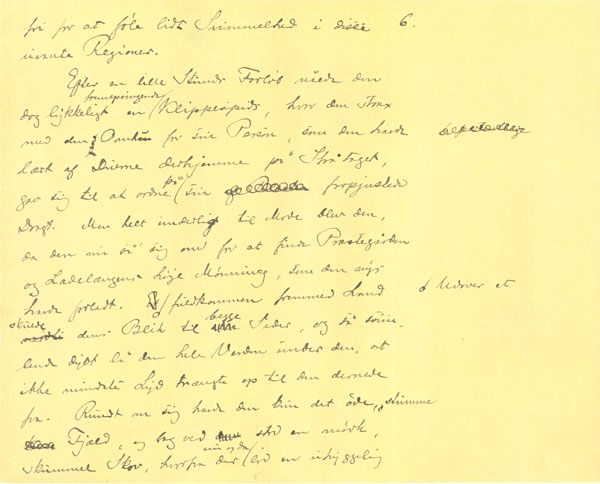 fri for at føle lidt Svimmelhed i disse 6.
uvante Regioner.
Efter en lille Stunds Forløb nåede den
fremspringende
dog lykkeligt en Klippespids, hvor den strax
med den Omhu for sin Person, som den havde
lært af Duerne derhjemme på Stråtaget,
på
gav sig til at ordne sin forpjuskede
Dragt. Men helt underligt til Mode blev den,
da den nu så sig om for at finde Præstegården
og Ladelængens høje Mønning, som den nys
havde forladt. fuldkommen fremmed Land Udover et
skuede begge
dens Blik til Sider, og så svim-
lende dybt lå den hele Verden under den, at
ikke mindste Lyd trængte op til den dernede
fra. Rundt om sig havde den kun det øde, stumme
Fjæld, og bag ved stod en mørk,
nu og da
skummel Skov, hvorfra der lød en uhyggelig